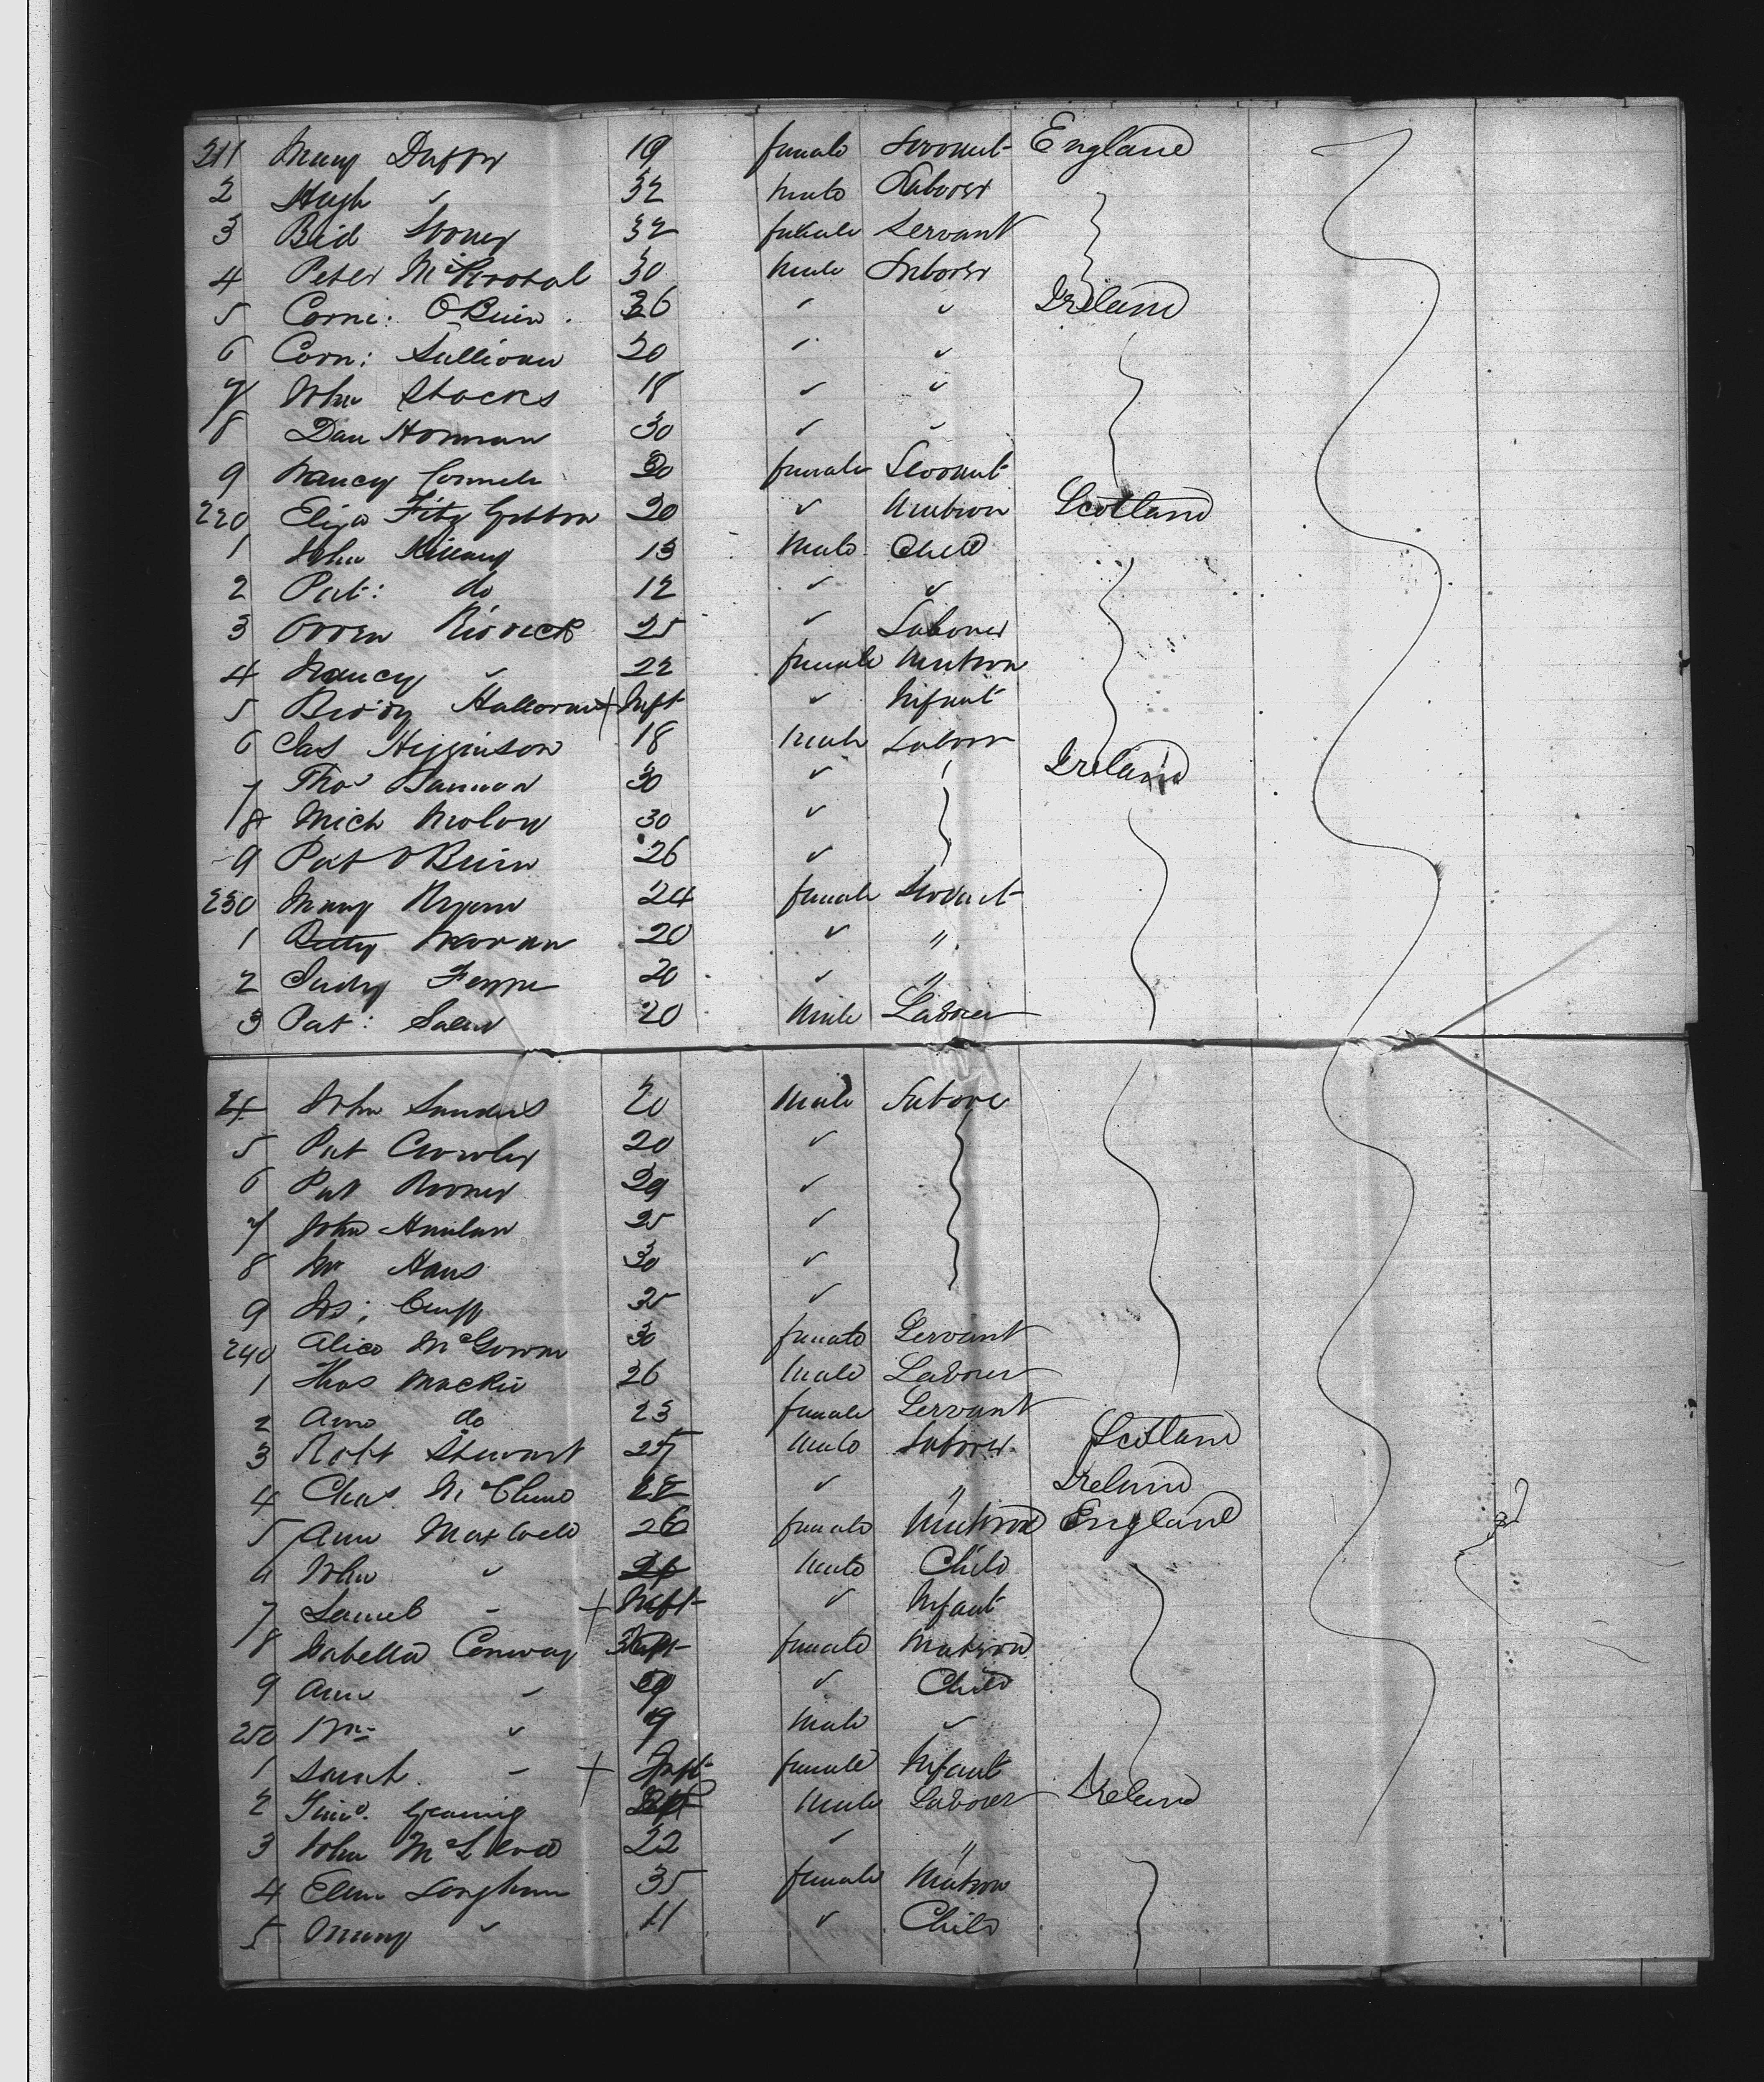 211 Mary Duffy 19 female Servant England
2 Hugh " 32 male Laborer
3 Bid 32 female Servant
4 Peter 30 male Laborer
5 Corni: OBrien 26 " " Ireland
6 Corn: Sullivan 20 " "
7 John Stacks 18 " "
8 Dan Honnan 30 " "
9 Nancy 30 female Servant
220 Eliza Fitz Gibbon 20 " Matron Scotland
1 John 13 Male Child
2 Pat: do 12 " "
3 Owen 25 " Laborer
4 Nancy " 22 female Matron
5 Halloran + Inft " Infant
6 Jas Higginson 18 male Labour
7 Thos Bannon 30 " Ireland
8 Mich Molony 30 "
9 Pat OBrien 26 "
230 Mary 24 female Servant
1 Betty Moran 20 " "
2 Judy 20 " "
3 Pat: 20 Male Laborer
4 John Sanders 20 Male Labore
5 Pat Crowley 20 "
6 Pat Rooney 29 "
7 John Hanlan 25 "
8 Wm Haus 30 "
9 25 "
240 Alice McGowen 30 female Servant
1 Thos Mackie 26 Male Laborer
2 Ann do 23 female Servant
3 Robt Stewart 27 Male Laborer Scotland
4 Chas 22 " " Ireland
5 Ann Maxwell 26 female Matron England
6 John " Male Child
7 Samuel " + Inft " Infant
8 Isabella Conway female Matron
9 Ann " 9 " Child
250 Wm " 9 Male "
1 Sarah " + Inft female Infant
2 Male Laborer Ireland
3 John McLeod 22 " "
4 Ellen Langhan 35 female Matron
5 Mary " 11 " Child